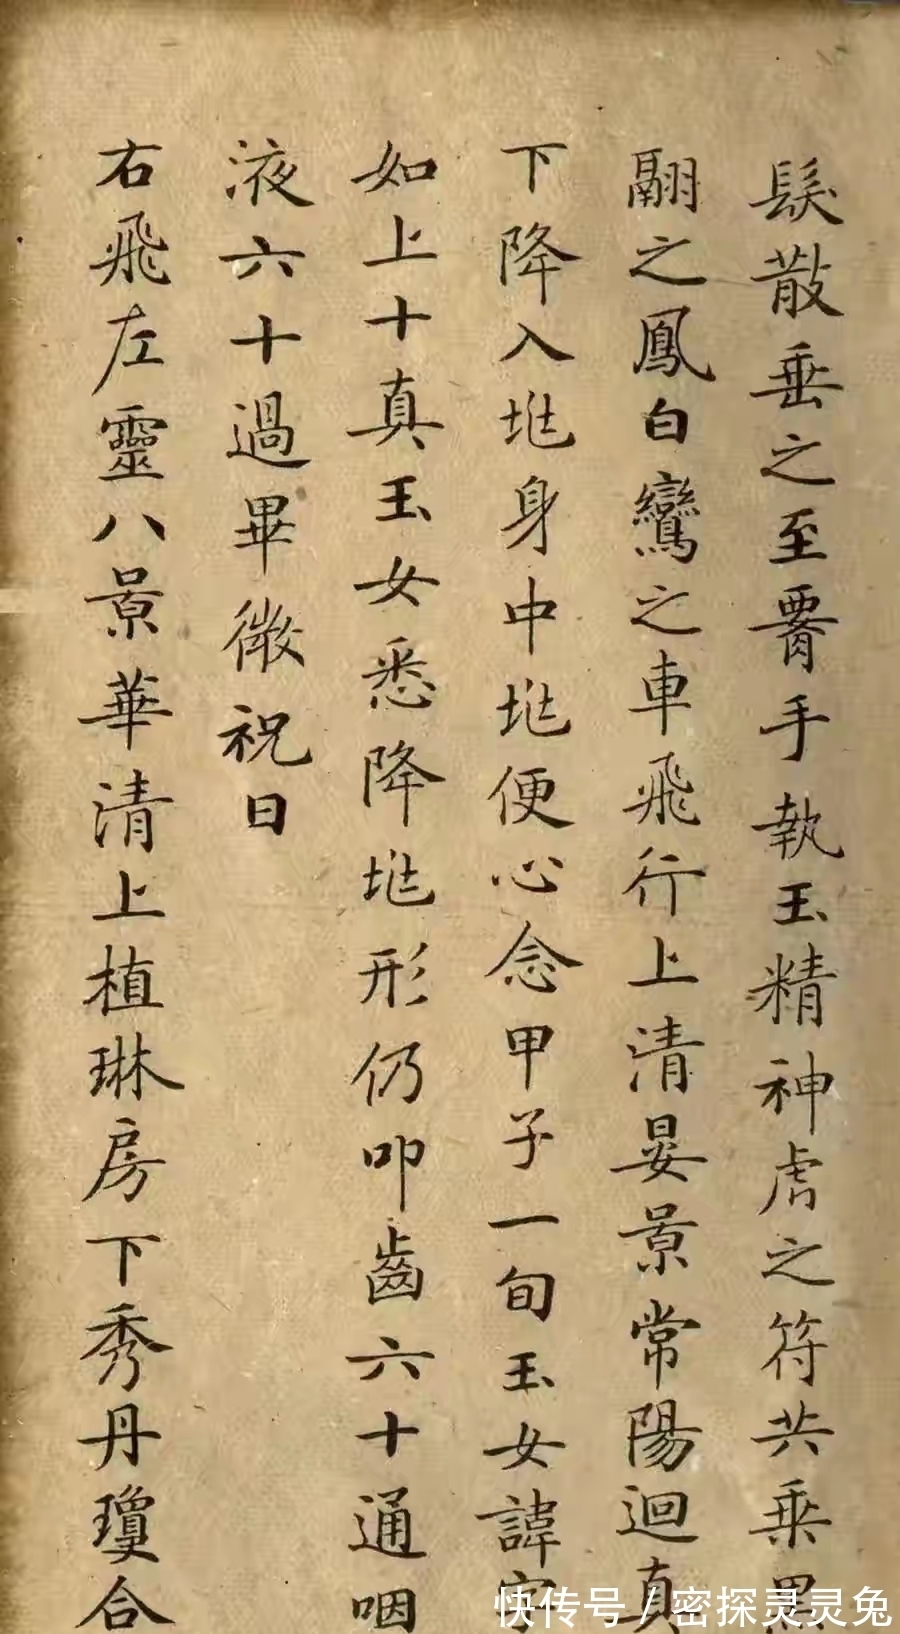 髮散垂之至䙅手執玉精神虎之符共乘黑
翮之鳳白鸞之車飛行上清晏景常陽迴真
下降入垗身中垗便心念甲子一旬玉女諱字
如上十真玉女悉降垗形仍叩齒六十通咽
液六十過畢微祝曰
右飛左靈八景華清上植琳房下秀丹瓊合
快传号 / 密探灵灵兔